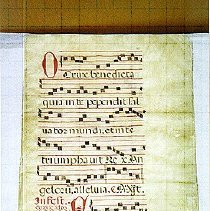 O
Crux benedicta
quia in te pependit sal
vator mundi, et in te
triumphavit Rex An
gelorū, alleluia.
In fest.